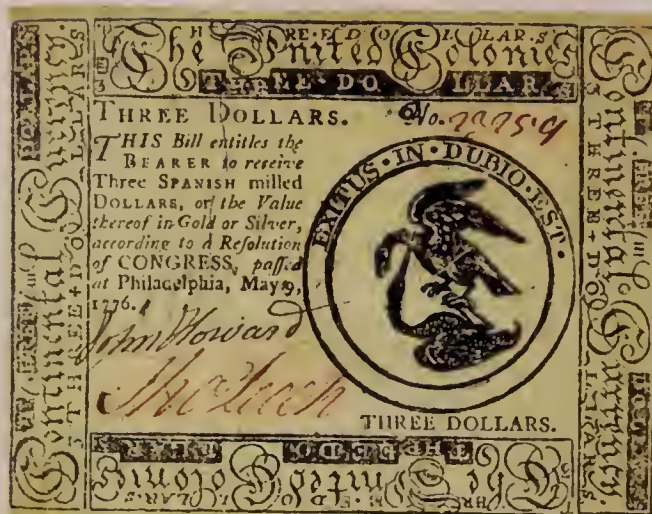 The United Colonies
THREE DOLLARS
THREE DOLLARS.
No.
THIS Bill entitles the
BEARER to receive
Three SPANISH milled
DOLLARS, or the Value
thereof in Gold or Silver,
according to a Resolution
of CONGRESS, passed
at Philadelphia, May 9,
1776.
EXITUS·IN·DUBIO·EST·
John Howard
THREE DOLLARS.
Continental Currency
THREE DOLLARS
Continental Currency
THREE DOLLARS
THREE DOLLARS
The United Colonies